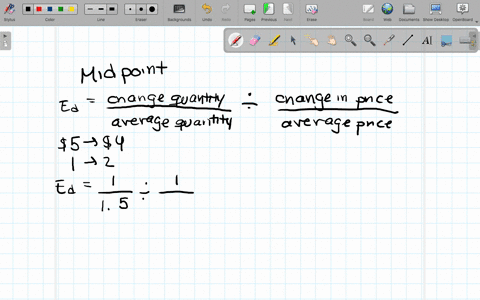 Pen
Color
Line
Eraser
Backgrounds
Undo
Redo
Pages
Previous
Next
Erase
Desktop
Web
Documents
Show Desktop
OpenBoard
Midpoint
Ed = change quantity / average quantity ÷ change in price / average price
$5 → $4
1 → 2
Ed = 1 / 1.5 ÷ 1 /